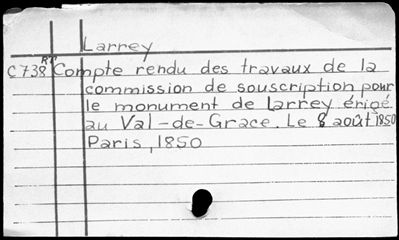 Larrey
C738 RT Compte rendu des travaux de la
commission de souscription pour
le monument de Larrey érigé
au Val-de-Grace. Le 8 août 1850
Paris, 1850